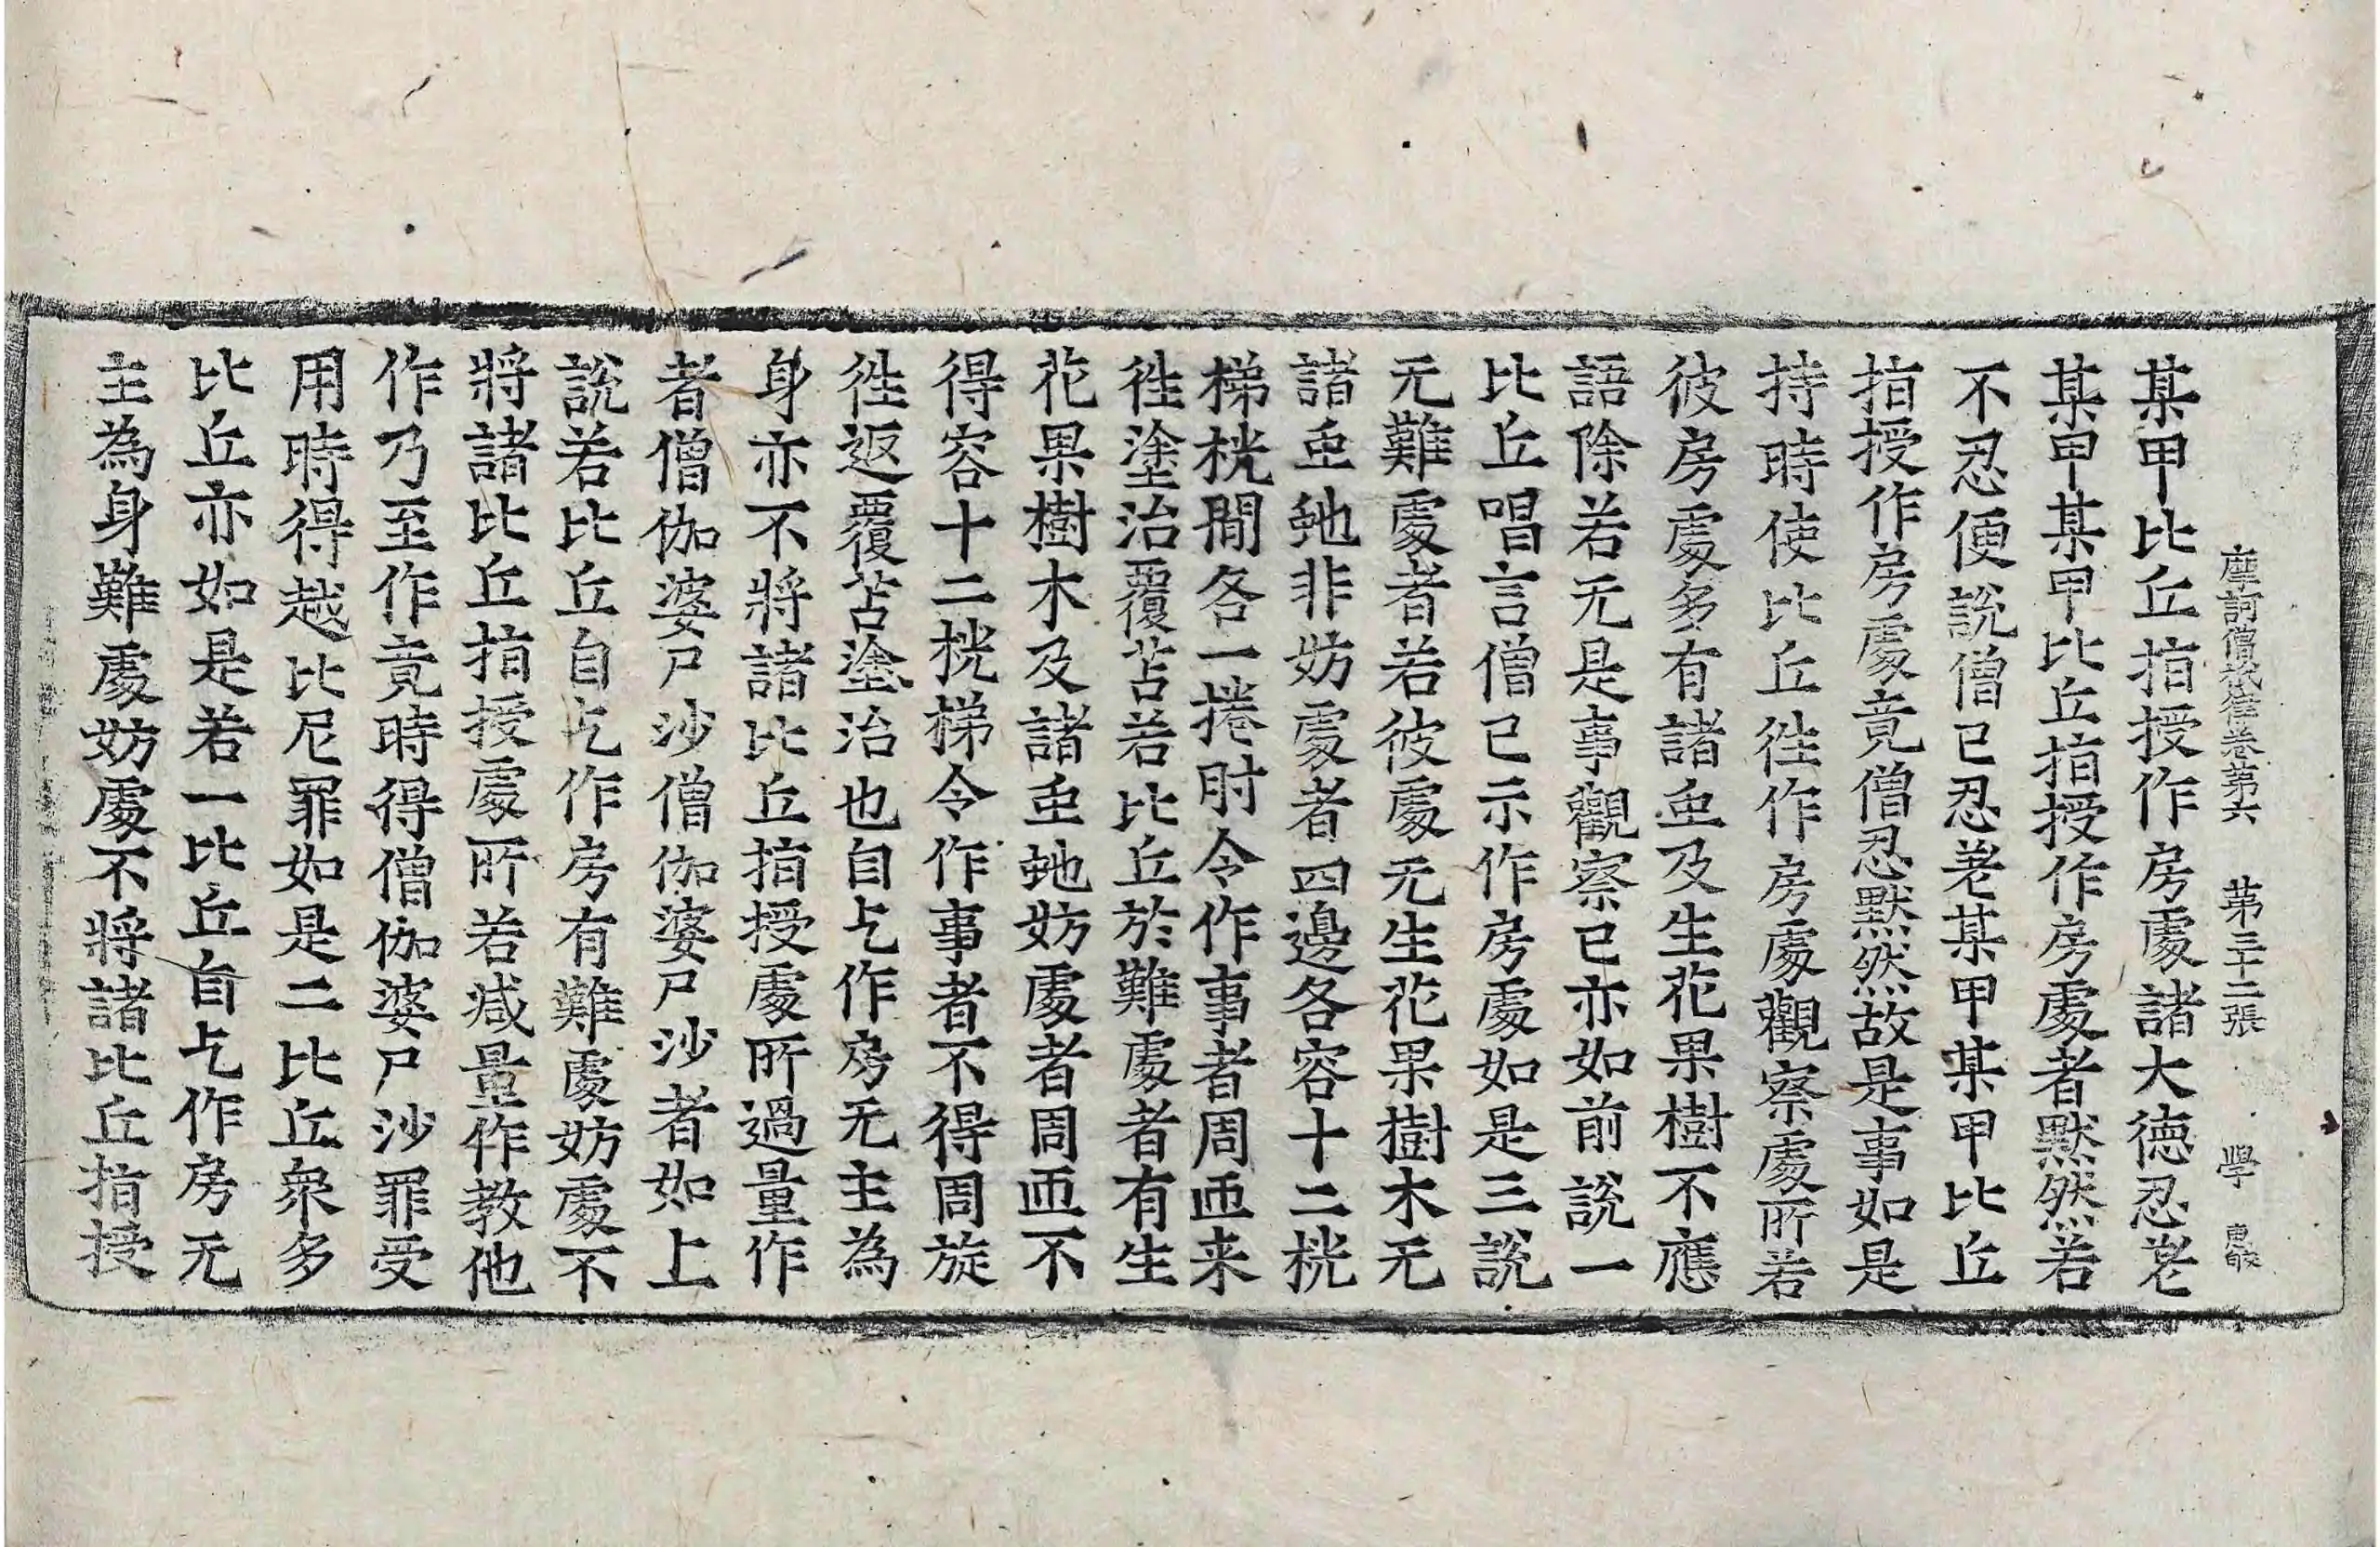 摩訶僧祇律卷第六 第三十二張 學
某甲比丘指授作房處諸大德忍㖈
某甲某甲比丘指授作房處者默然若
不忍便說僧已忍㖈某甲某甲比丘
指授作房處竟僧忍默然故是事如是
持時使比丘徃作房處觀察處所若
彼房處多有諸䖝及生花果樹不應
語除若无是事觀察已亦如前說一
比丘唱言僧已示作房處如是三說
无難處者若彼處无生花果樹木无
諸䖝虵非妨處者四邊各容十二桄
梯桄閒各一捲肘令作事者周迊来
徃塗治覆苫若比丘於難處者有生
花果樹木及諸䖝虵妨處者周迊不
得容十二桄梯令作事者不得周旋
徃返覆苫塗治也自乞作房无主為
身亦不將諸比丘指授處所過量作
者僧伽婆尸沙僧伽婆尸沙者如上
說若比丘自乞作房有難處妨處不
將諸比丘指授處所若减量作教他
作乃至作竟時得僧伽婆尸沙罪受
用時得越比尼罪如是二比丘衆多
比丘亦如是若一比丘自乞作房无
主為身難處妨處不將諸比丘指授